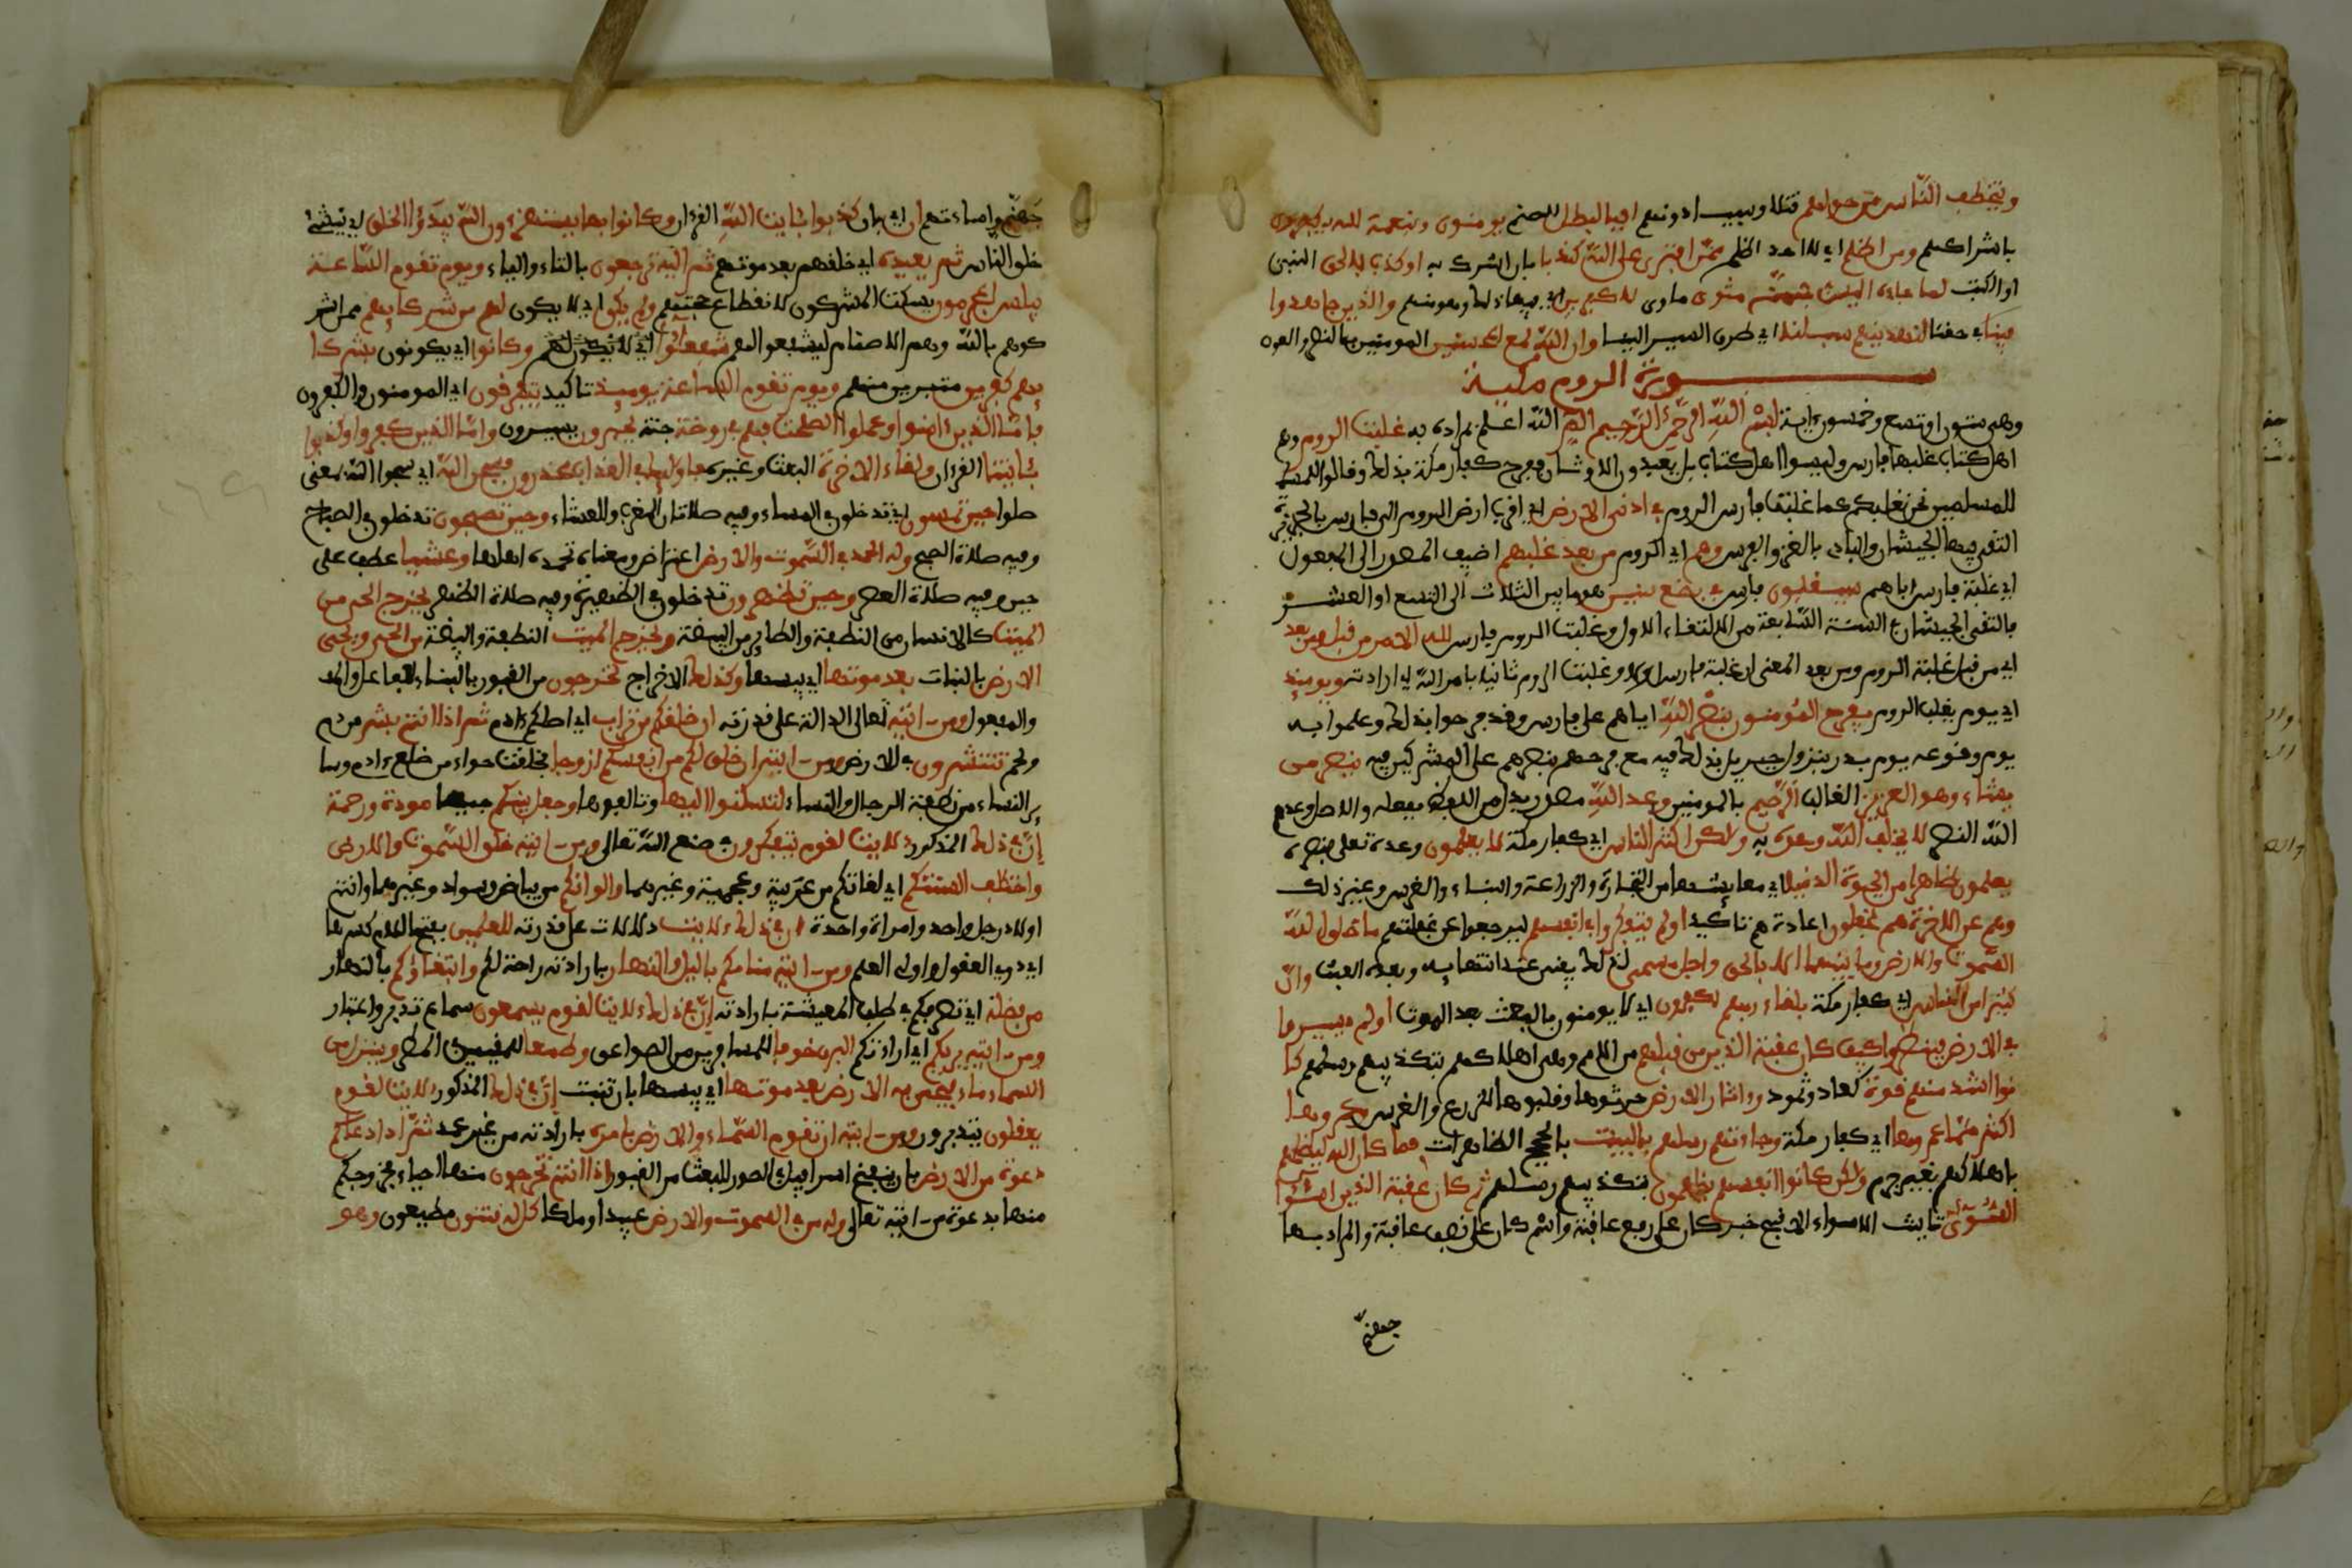 ويتخطف الناس من حولهم قتلا وسبيا دونهم افبالبطل الصنم يومنون وبنعمة الله يكفرون
باشراكهم ومن اظلم اي لا احد اظلم ممن افترى على الله كذبا بان اشرك به او كذب بالحق النبي
او الكتب لما جاءه اليس في جهنم مثوى ماوى للكفرين اي فيها ذلك وهو منهم والذين جاهدوا
فينا في حقنا لنهدينهم سبلنا اي طرق السير الينا وان الله لمع المحسنين المومنين بالنصر والعون
سورة الروم مكية
وهي ستون او تسع وخمسون ءاية بسم الله الرحمن الرحيم الم الله اعلم بمراده به غلبت الروم وهم
اهل كتاب غلبها فارس وليسوا اهل كتاب بل يعبدون الاوثان ففرح كفار مكة بذلك وقالوا
للمسلمين نحن نغلبكم كما غلبت فارس الروم في ادنى الارض اي اقرب ارض الروم الى فارس بالجزيرة
التقى فيها الجيشان والبادي بالغزو الفرس وهم اي الروم من بعد غلبهم اضيف المصدر الى المفعول
اي غلبة فارس اياهم سيغلبون فارس في بضع سنين هو ما بين الثلاث الى التسع او العشر
فالتقى الجيشان في السنة السابعة من الالتقاء الاول وغلبت الروم فارس لله الامر من قبل ومن بعد
اي من قبل غلبة الروم ومن بعد المعنى ان غلبة فارس اولا وغلبت الروم ثانيا بامر الله اي ارادته ويوميذ
اي يوم يغلب الروم يفرح المومنون بنصر الله اياهم على فارس وقد فرحوا بذلك وعلموا به
يوم وقوعه يوم بدر بنزول جبريل بذلك فيه مع فرحهم بنصرهم على المشركين فيه ينصر من
يشاء وهو العزيز الغالب الرحيم بالمومنين وعد الله مصدر بدل من اللفظ بفعله والاصل وعدهم
الله النصر لا يخلف الله وعده به ولكن اكثر الناس اي كفار مكة لا يعلمون وعده تعلى بنصره
يعلمون ظاهرا من الحيوة الدنيا اي معايشها من التجارة والزراعة والبناء والغرس وغير ذلك
وهم عن الاخرة هم غفلون اعادة هم تاكيد اولم يتفكروا في انفسهم ليرجعوا عن غفلتهم ما خلق الله
السموت والارض وما بينهما الا بالحق واجل مسمى لذلك يفنى عند انتهايه وبعده البعث وان
كثيرا من الناس اي كفار مكة بلقاء ربهم لكفرون اي لا يومنون بالبعث بعد الموت اولم يسيروا
في الارض فينظروا كيف كان عقبة الذين من قبلهم من الامم وهي اهلاكهم بتكذيبهم رسلهم كا
نوا اشد منهم قوة كعاد وثمود واثاروا الارض حرثوها وقلبوها للزرع والغرس وعمروها
اكثر مما عمروها اي كفار مكة وجاءتهم رسلهم بالبينت بالحجج الظاهرات فما كان الله ليظلمهم
باهلاكهم بغير جرم ولكن كانوا انفسهم يظلمون بتكذيبهم رسلهم ثم كان عقبة الذين اسئوا
السوأى تانيث الاسواء الاقبح خبر كان على رفع عاقبة واسم كان على نصب عاقبة والمراد بها
جهنم
جهنم واساءتهم ان اي بان كذبوا بئايت الله القرءان وكانوا بها يستهزءون الله يبدؤا الخلق اي ينشئ
خلق الناس ثم يعيده اي خلقهم بعد موتهم ثم اليه ترجعون بالتاء والياء ويوم تقوم الساعة
يبلس المجرمون يسكت المشركون لانقطاع حجتهم ولم يكن اي لا يكون لهم من شركايهم ممن اشر
كوهم بالله وهم الاصنام ليشفعوا لهم شفعؤا اي لا يكون لهم وكانوا اي يكونون بشركا
يهم كفرين متبرين منهم ويوم تقوم الساعة يوميذ تاكيد يتفرقون اي المومنون والكفرون
فاما الذين ءامنوا وعملوا الصلحت فهم في روضة جنة يحبرون يسرون واما الذين كفروا وكذبوا
بئايتنا القرءان ولقاء الاخرة البعث وغيره فاوليك في العذاب محضرون فسبحن الله اي سبحوا الله بمعنى
صلوا حين تمسون اي تدخلون في المساء وفيه صلاتان المغرب والعشاء وحين تصبحون تدخلون في الصباح
وفيه صلاة الصبح وله الحمد في السموت والارض اعتراض ومعناه تحمده اهلها وعشيا عطف على
حين وفيه صلاة العصر وحين تظهرون تدخلون في الظهيرة وفيه صلاة الظهر يخرج الحي من
الميت كالانسان من النطفة والطاير من البيضة ويخرج الميت النطفة والبيضة من الحي ويحيي
الارض بالنبات بعد موتها اي يبسها وكذلك الاخراج تخرجون من القبور بالبناء للفاعل
والمفعول ومن ءايته تعالى الدالة على قدرته ان خلقكم من تراب اي اصلكم ءادم ثم اذا انتم بشر من دم
ولحم تنتشرون في الارض ومن ءايته ان خلق لكم من انفسكم ازوجا فخلقت حواء من ضلع ءادم وسا
ير النساء من نطفة الرجال والنساء لتسكنوا اليها وتالفوها وجعل بينكم جميعا مودة ورحمة
ان في ذلك المذكور لايت لقوم يتفكرون في صنع الله تعالى ومن ءايته خلق السموت والارض
واختلف السنتكم اي لغاتكم من عربية وعجمية وغيرهما والوانكم من بياض وسواد وغيرهما وانتم
اولاد رجل واحد وامراة واحدة ان في ذلك لايت دلالات على قدرته للعلمين بفتح اللام وكسرها
اي ذوي العقول واولي العلم ومن ءايته منامكم باليل والنهار بارادته راحة لكم وابتغاؤكم بالنهار
من فضله اي تصرفكم في طلب المعيشة بارادته ان في ذلك لايت لقوم يسمعون سماع تدبر واعتبار
ومن ءايته يريكم اي اراءتكم البرق خوفا للمسافر من الصواعق وطمعا للمقيم في المطر وينزل من
السماء ماء فيحي به الارض بعد موتها اي يبسها بان تنبت ان في ذلك المذكور لايت لقوم
يعقلون يتدبرون ومن ءايته ان تقوم السماء والارض بامره بارادته من غير عمد ثم اذا دعاكم
دعوة من الارض بان ينفخ اسرافيل في الصور للبعث من القبور اذا انتم تخرجون منها احياء فخروجكم
منها بدعوة من ءايته تعالى وله من في السموت والارض عبيدا وملكا كل له قنتون مطيعون وهو